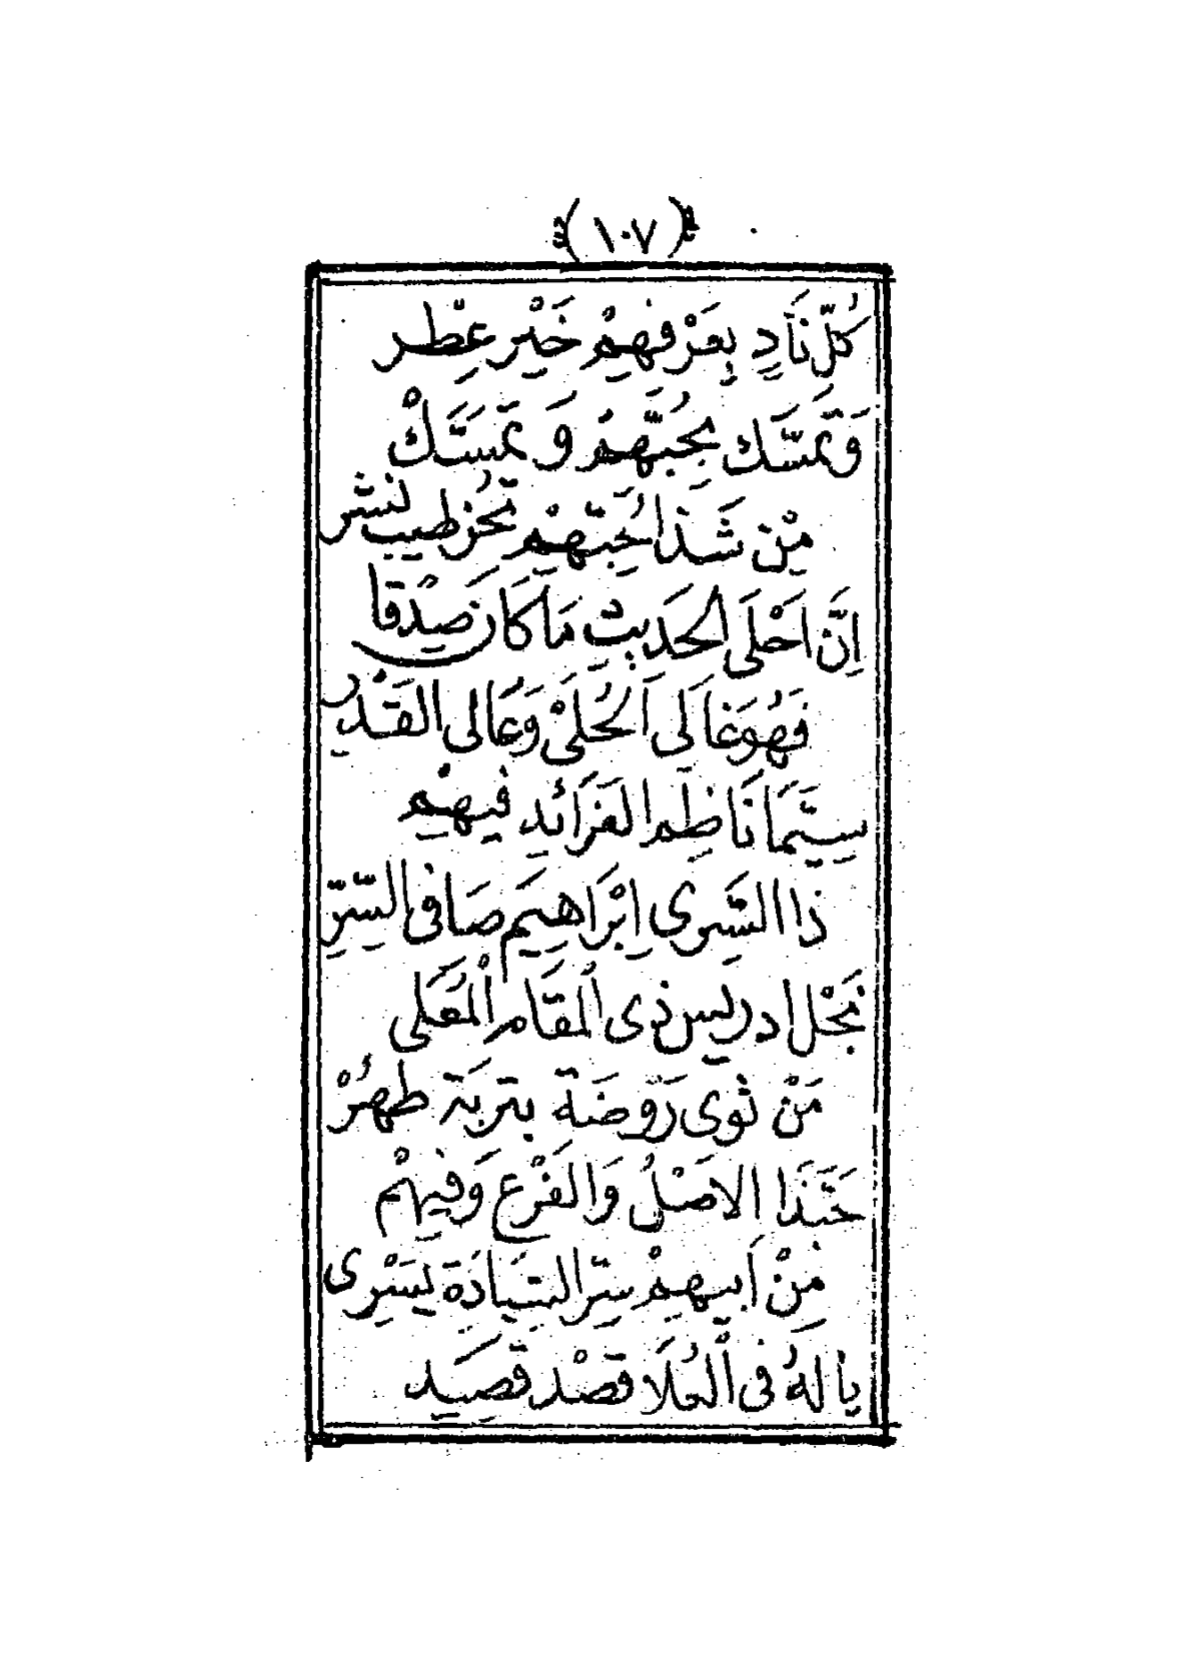 (١٠٧)
كُلِّ نَادٍ بِعَرْفِهِمْ خَيْرِ عِطْرِ
وَتَمَسَّك بِحُبِّهِمْ وَتَمَسَّكْ
مِنْ شَذَا حُبِّهِمْ تَحُزْ طيب نشر
اِنَّ اَحْلَى الحَدَيثِ مَا كَانَ صِدْقا
فَهُوَ غَالَى اَلحُلَىْ وَعَالى القَدْرِ
سِيَّمَا نَاظِمِ الفَرَائدِ فيهِمْ
ذا السِّرى اِبْرَاهِيم صَافى السِّرِّ
نَجْل ادريس ذى اْلمَقَام اْلمُعَلى
مَنْ ثوى رَوْضَة بتربَة طهُرْ
حَبَّذَا الاصْلُ وَالفَرْع وَفيهِمْ
مِنْ اَبيهِمْ سِرّ السِّيَادَةِ يَسْرِى
يا لَهُ فى اْلعُلَا قَصْد قَصِيَد